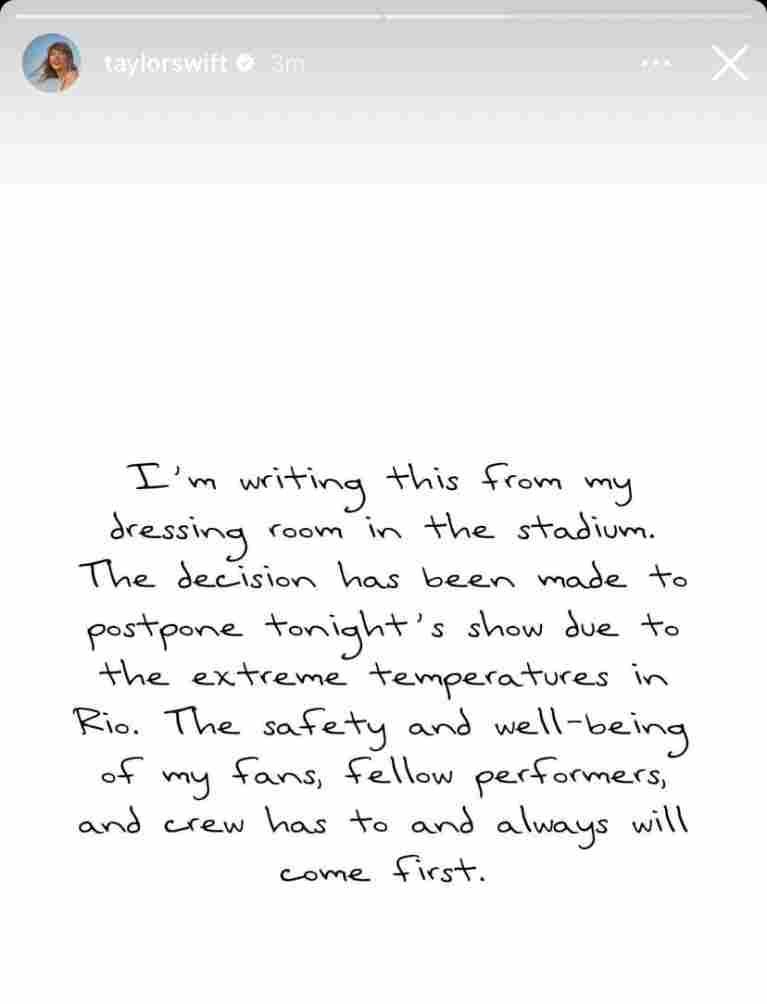 taylorswift 3m
I'm writing this from my
dressing room in the stadium.
The decision has been made to
postpone tonight's show due to
the extreme temperatures in
Rio. The safety and well-being
of my fans, fellow performers,
and crew has to and always will
come first.